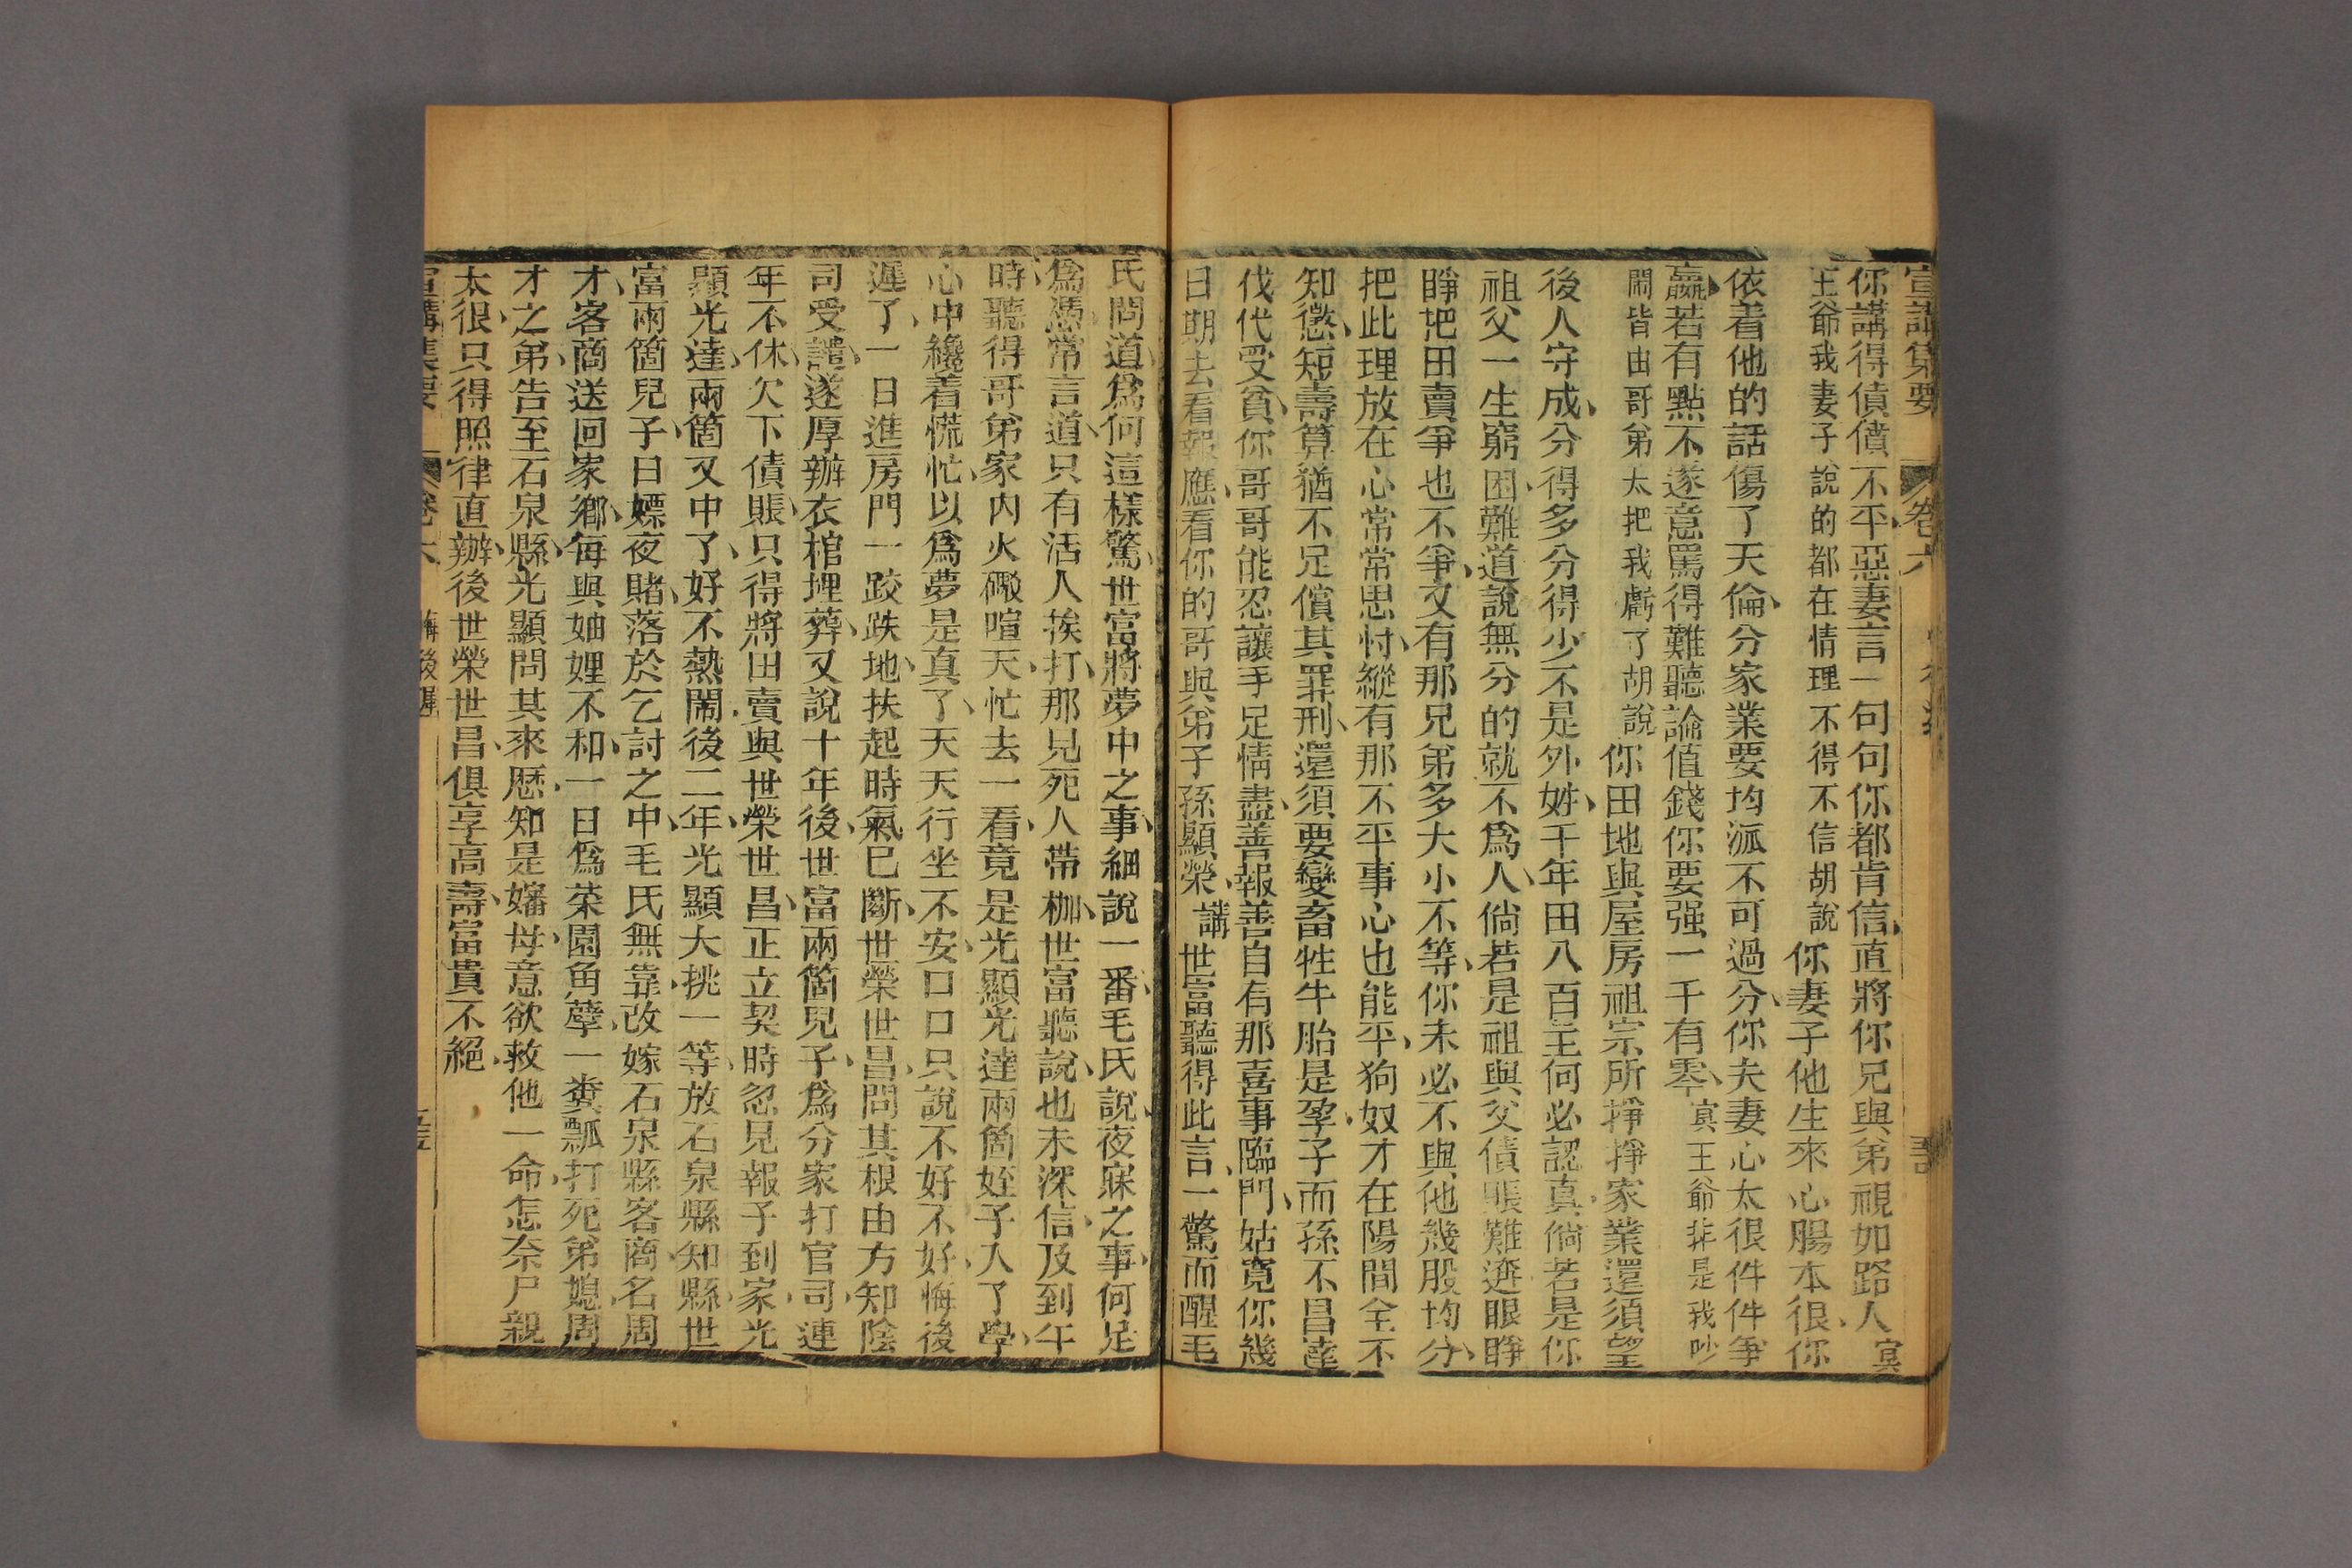 宣講集要 卷六
你講得債債不平惡妻言一句句你都肯信直將你兄與弟視如路人冥
王爺我妻子說的都在情理不得不信胡說你妻子他生來心腸本很你
依着他的話傷了天倫分家業要均派不可過分你夫妻心太很件件爭
贏若有點不遂意罵得難聽論值錢你要强一千有零冥王爺非是我吵
鬧皆由哥弟太把我虧了胡說你田地與屋房祖宗所掙掙家業還須望
後人守成分得多分得少不是外姓千年田八百主何必認真倘若是你
祖父一生窮困難道說無分的就不爲人倘若是祖與父債賬難濟眼睜
睜把田賣爭也不爭又有那兄弟多大小不等你未必不與他幾股均分
把此理放在心常常思忖縱有那不平事心也能平狗奴才在陽間全不
知懲短壽算猶不足償其罪刑還須要變畜牲牛胎是孕子而孫不昌達
伐代受貧你哥哥能忍讓手足情盡善報善自有那喜事臨門姑寬你幾
日期去看報應看你的哥與弟子孫顯榮講世富聽得此言一驚而醒毛
氏問道爲何這樣驚世富將夢中之事細說一番毛氏說夜寐之事何足
爲憑常言道只有活人挨打那見死人帶枷世富聽說也未深信及到午
時聽得哥弟家內火礮喧天忙去一看竟是光顯光達兩箇姪子入了學
心中纔着慌忙以爲夢是真了天天行坐不安口口只說不好不好悔後
遲了一日進房門一跤跌地扶起時氣已斷世榮世昌問其根由方知陰
司受譴遂厚辦衣棺埋葬又說十年後世富兩箇兒子爲分家打官司連
年不休欠下債賬只得將田賣與世榮世昌正立契時忽見報子到家光
顯光達兩箇又中了好不熱鬧後二年光顯大挑一等放石泉縣知縣世
富兩箇兒子日嫖夜賭落於乞討之中毛氏無靠改嫁石泉縣客商名周
才客商送回家鄉每與妯娌不和一日爲菜園角孽一糞瓢打死弟媳周
才之弟告至石泉縣光顯問其來歷知是嬸母意欲救他一命怎奈尸親
太很只得照律直辦後世榮世昌俱享高壽富貴不絕
宣講集要 卷六 悔後遲